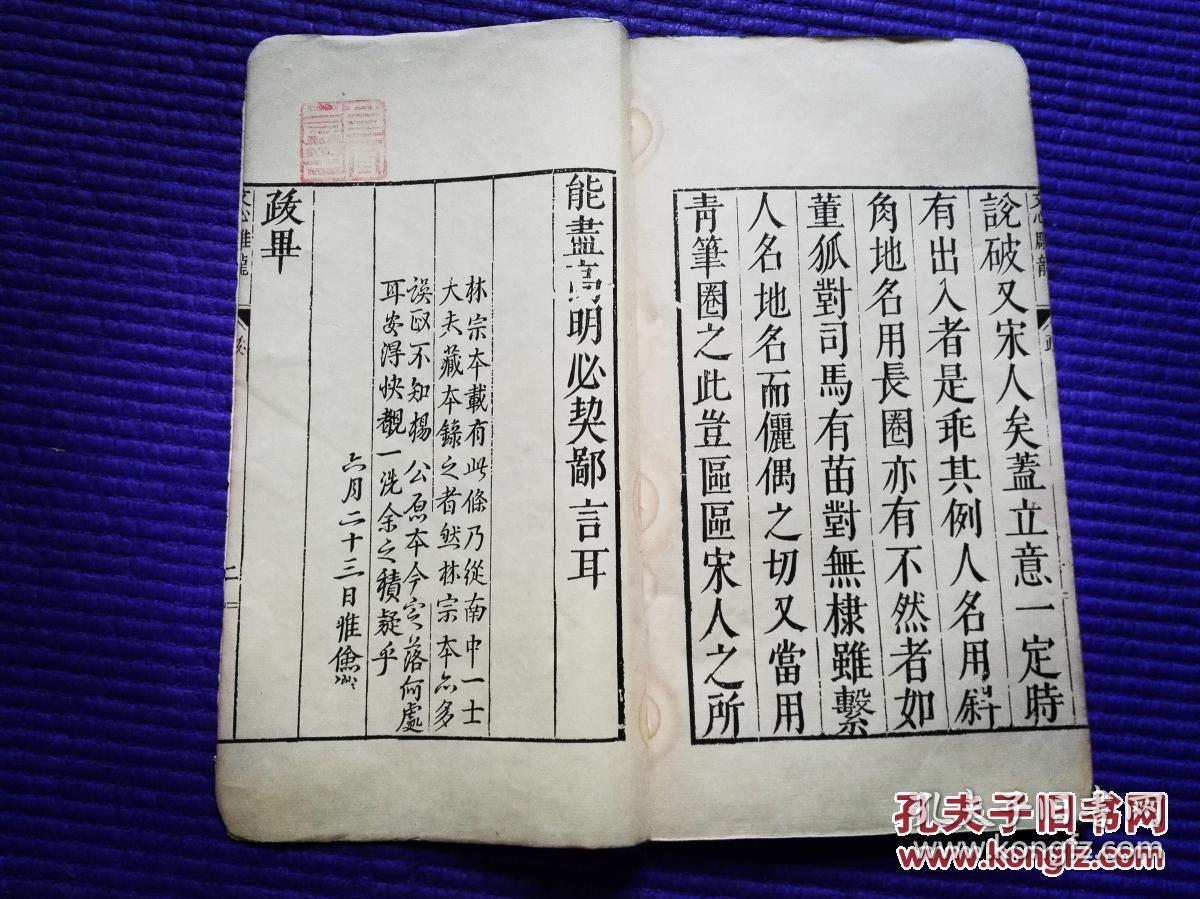 說破又宋人矣蓋立意一定時
有出入者是乖其例人名用斜
角地名用長圈亦有不然者如
董狐對司馬有苗對無棣雖繫
人名地名而儷偶之切又當用
青筆圈之此豈區區宋人之所
能盡高明必契鄙言耳
林宗本載有此條乃從南中一士
大夫藏本錄之者然林宗本亦多
誤改不知楊 公原本今定落何處
耳安得快覩一洗余之積疑乎
六月二十三日
跋畢
文心雕龍
文心雕龍
二
孔夫子旧书网
kongfz.com